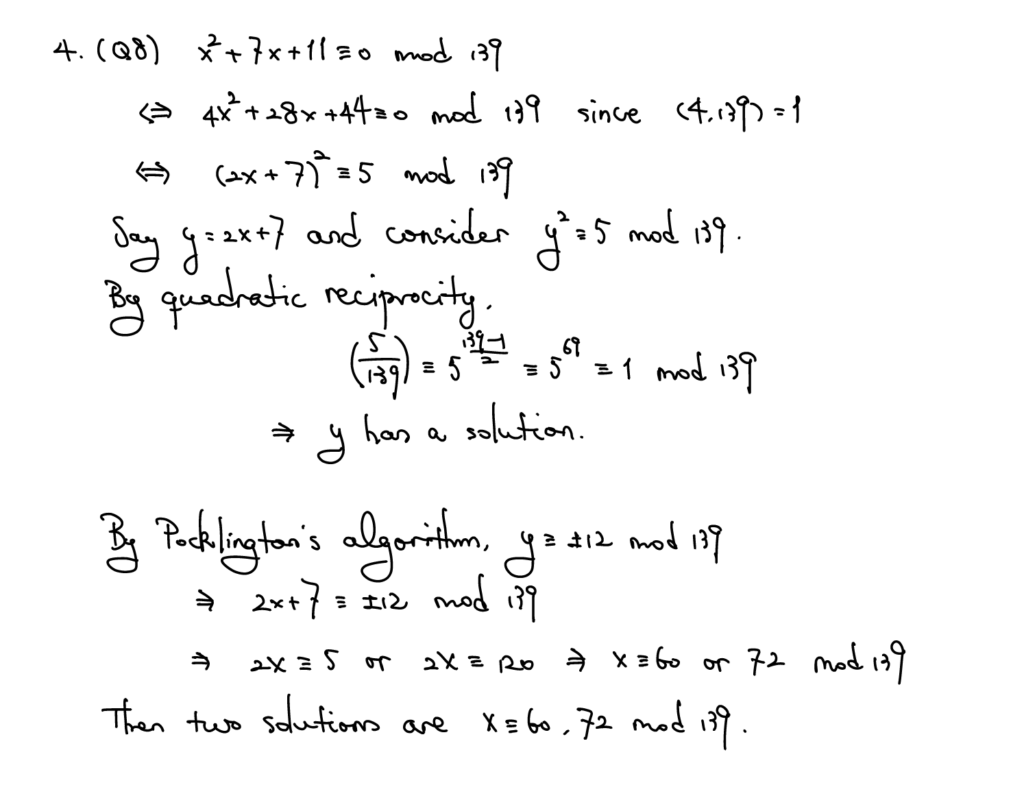 4. (Q8) x² + 7x + 11 ≡ 0 mod 139
⇔ 4x² + 28x + 44 ≡ 0 mod 139 since (4, 139) = 1
⇔ (2x + 7)² ≡ 5 mod 139
Say y = 2x+7 and consider y² ≡ 5 mod 139.
By quadratic reciprocity,
(5/139) ≡ 5^((139-1)/2) ≡ 5^69 ≡ 1 mod 139
⇒ y has a solution.
By Pocklington's algorithm, y ≡ ±12 mod 139
⇒ 2x+7 ≡ ±12 mod 139
⇒ 2x ≡ 5 or 2x ≡ 120 ⇒ x ≡ 60 or 72 mod 139
Then two solutions are x ≡ 60, 72 mod 139.